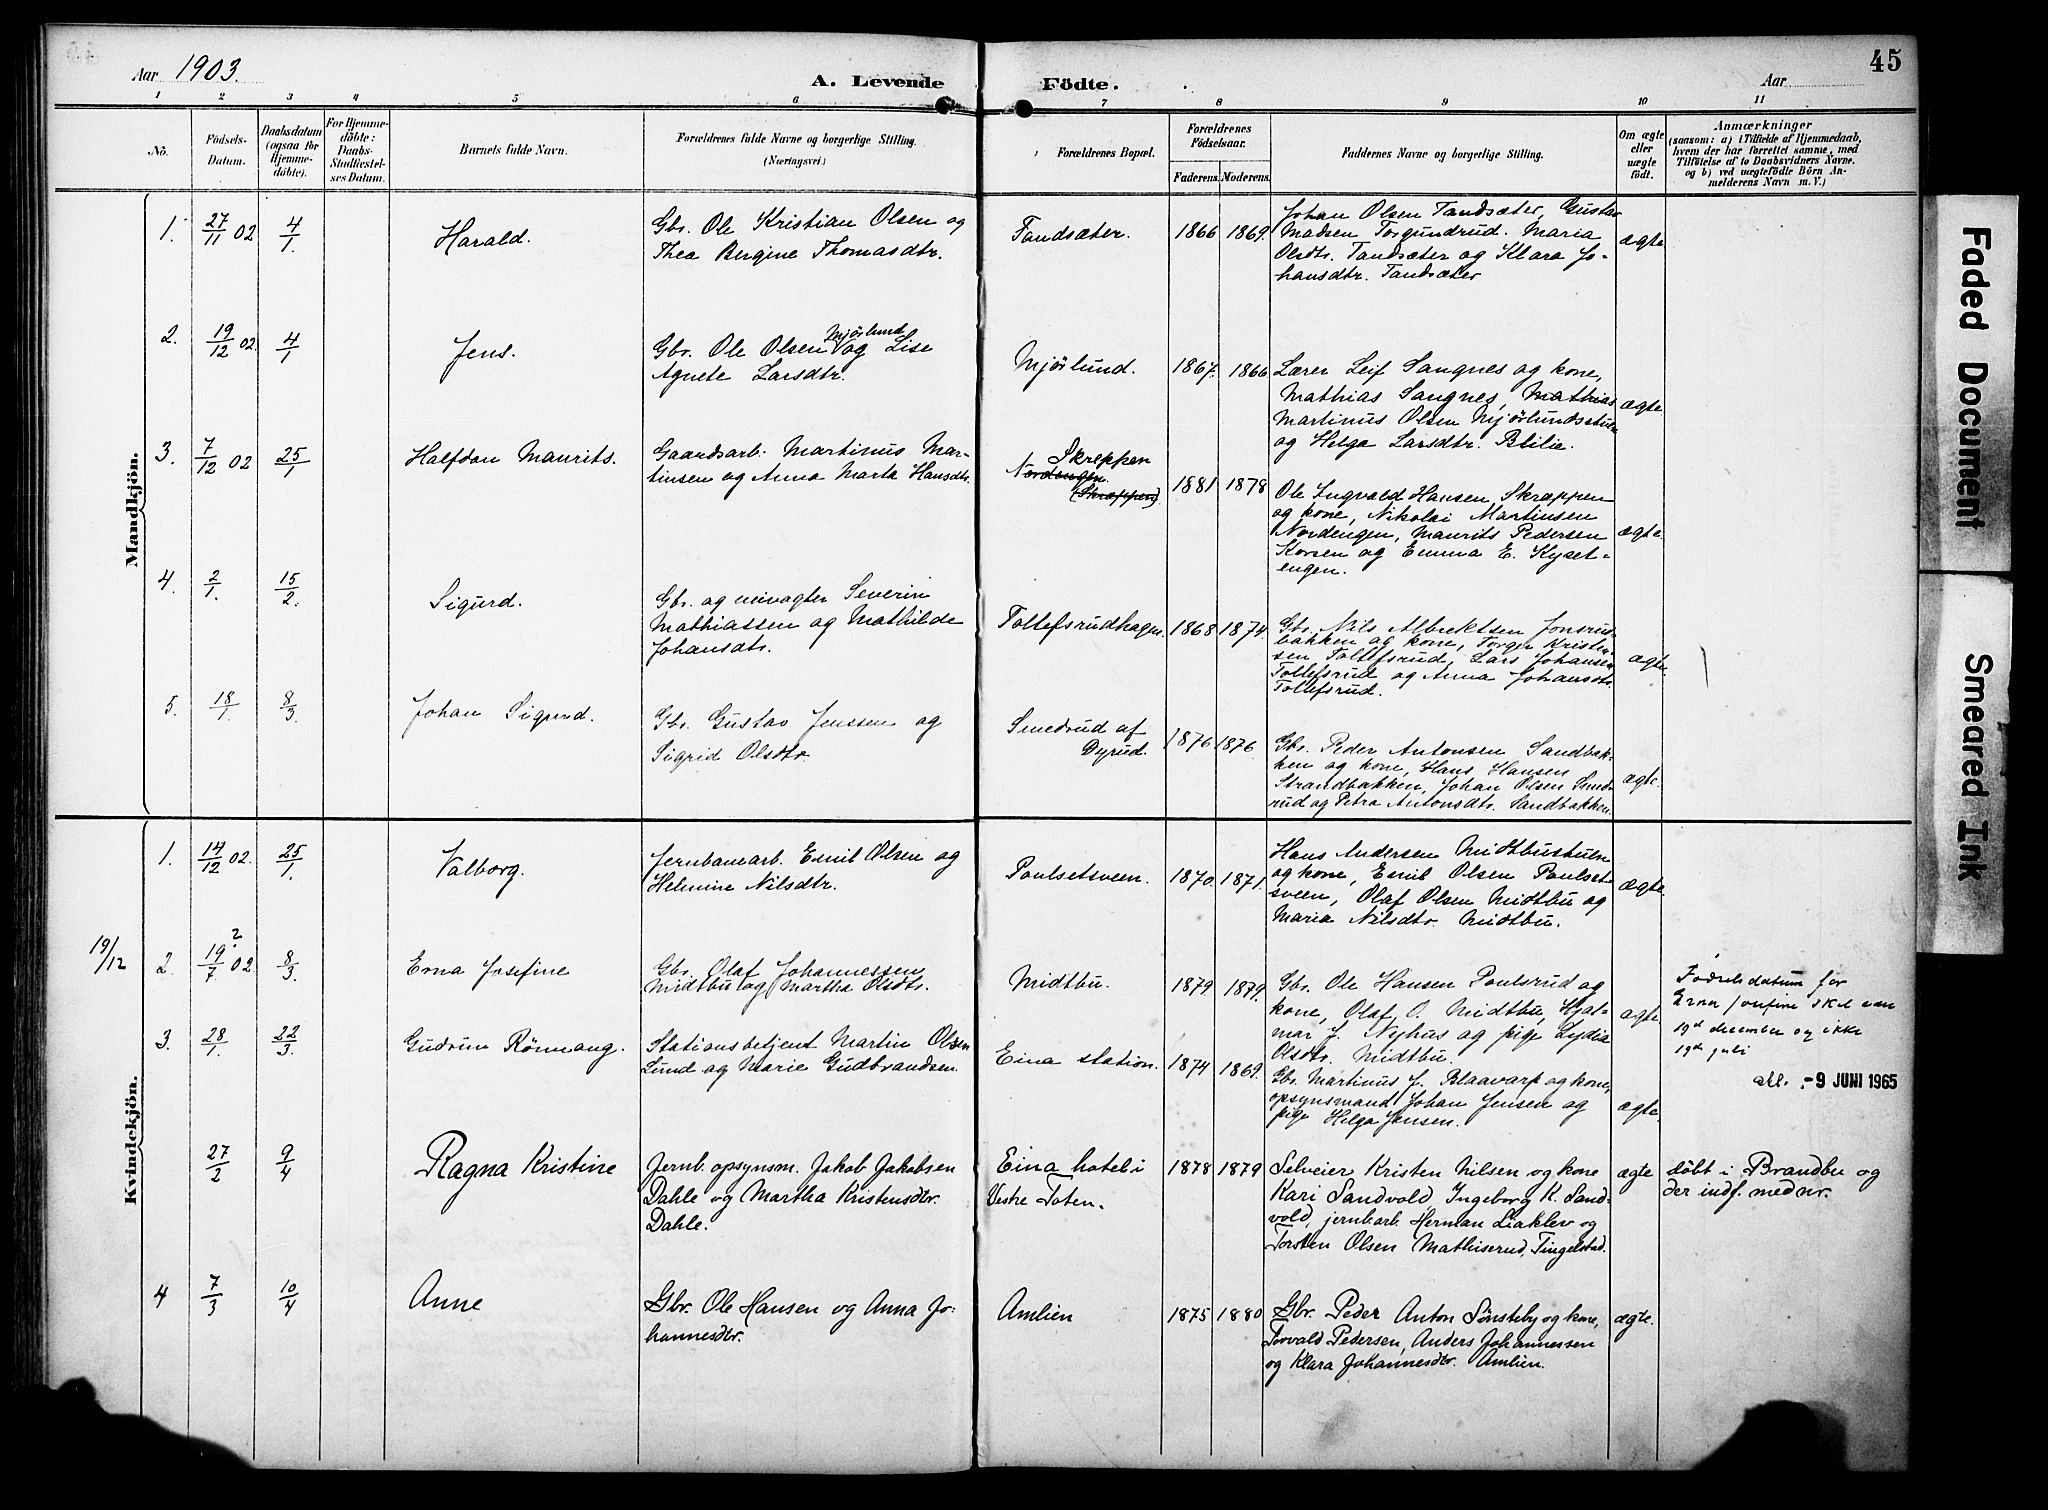 Aar 1903.
A. Levende
Födte.
Aar
45
1 2 3 4 5 6 7 8 9 10 11
No.
Födsels-Datum.
Daabsdatum (ogsaa for Hjemme-döbte).
For Hjemme-döbte: Daabs-Stadfæstel-ses Datum.
Barnets fulde Navn.
Forældrenes fulde Navne og borgerlige Stilling. (Næringsvei.)
Forældrenes Bopæl.
Forældrenes Födselsaar.
Faderens. Moderens.
Faddernes Navne og borgerlige Stilling.
Om ægte eller uægte födt.
Anmærkninger
(saasom: a) i Tilfælde af Hjemmedaab,
hvem der har forrettet samme, med
Tilföielse af to Daabsvidners Navne.
og b) ved uægtefödte Börn An-
melderens Navn m. V.)
Mandkjön.
1. 27/11 02 4/1 Harald.
Gbr. Ole Kristian Olsen og
Thea Bergine Thomasdtr.
Tandsæter. 1866 1869.
Johan Olsen Tandsæter, Gustav
Madsen Torgundrud. Maria
Olsdtr. Tandsæter og Klara Jo-
hansdtr. Tandsæter
ægte
2. 19/12 02. 4/1 Jens.
Gbr. Ole Olsen Mjörlund og Lise
Agnete Larsdtr.
Mjörlund. 1867. 1866
Lærer Leif Sangnes og kone,
Mathias Sangnes, Mathias
Martinus Olsen Mjörlundsstuen
og Helga Larsdtr. Blilie.
ægte
3. 7/12 02 25/1 Halfdan Maurits.
Gaardsarb. Martinus Mar-
tinsen og Anna Marta Hansdtr.
Skreppen
Nordengen.
(Skræppen)
1881 1878
Ole Ingvald Hansen, Skræppen
og kone, Nikolai Martinsen
Nordengen, Maurits Pedersen
Korsen og Emma E. Kyset-
engen.
ægte.
4. 2/1. 15/2. Sigurd.
Gbr. og veivogter Severin
Mathiassen og Mathilde
Johansdtr.
Tollefsrudhagen. 1868 1874.
Gbr. Nils Albrektsen Jonsrud-
bakken og kone, Torger Kristen-
sen Tollefsrud, Lars Johansen
Tollefsrud og Anna Johansdtr.
Tollefsrud.
ægte.
5. 18/1. 8/3 Johan Sigurd.
Gbr. Gustav Jenssen og
Sigrid Olsdtr.
Smedrud af
Dyrud.
1876 1876
Gbr. Peder Antonsen Sandbak-
ken og kone, Hans Hansen
Strandbakken, Johan Olsen Smed-
rud og Petra Antonsdtr. Sandbakken.
ægte.
Kvindekjön.
1. 14/12 02. 25/1. Valborg.
Jernbanearb. Emil Olsen og
Helmine Nilsdtr.
Poulsetsveen. 1870. 1871.
Hans Andersen Midtbustuen
og kone, Emil Olsen Paulset-
sveen, Olaf Olsen Midtbu og
Maria Nilsdtr. Midtbu.
ægte.
19/12
2. 19/7 02 ? 8/3 Erna Josefine
Gbr. Olaf Johannessen
Midtbu og Martha Olsdtr.
Midtbu. 1879. 1879.
Gbr. Ole Hansen Poulsrud og
kone, Olaf O. Midtbu, Hjal-
mar J. Nyhus og pige Lydia
Olsdtr. Midtbu.
ægte
Fødselsdatum for
Erna Josefine skal være
19de december og ikke
19de juli
-9 JUNI 1965
3. 28/1. 22/3. Gudrun Rönnaug.
Stationsbetjent Martin Olsen
Lund og Marie Gudbrandsen.
Eina station. 1874 1869.
Gbr. Martinus J. Blaavarp og kone,
opsynsmand Johan Jensen og
pige Helga Jensen.
ægte.
27/2 9/4 Ragna Kristine
Jernb. opsynsm. Jakob Jakobsen
Dahle og Martha Kristensdtr.
Dahle.
Eina hotel i
Vestre Toten.
1878 1879
Selveier Kristen Nilsen og kone
Kari Sandvold, Ingeborg K. Sand-
vold, jernb.arb Herman Liaklev og
Torsten Olsen Mathiserud, Tingelstad.
ægte
döbt i Brandbu og
der indf. med nr.
4 7/3 10/4 Anne
Gbr. Ole Hansen og Anna Jo-
hannesdtr.
Amlien 1875 1880
Gbr. Peder Anton Sönsteby og kone,
Torvald Pedersen, Anders Johannessen
og Klara Johannesdtr. Amlien.
ægte.
Faded Document
Smeared Ink